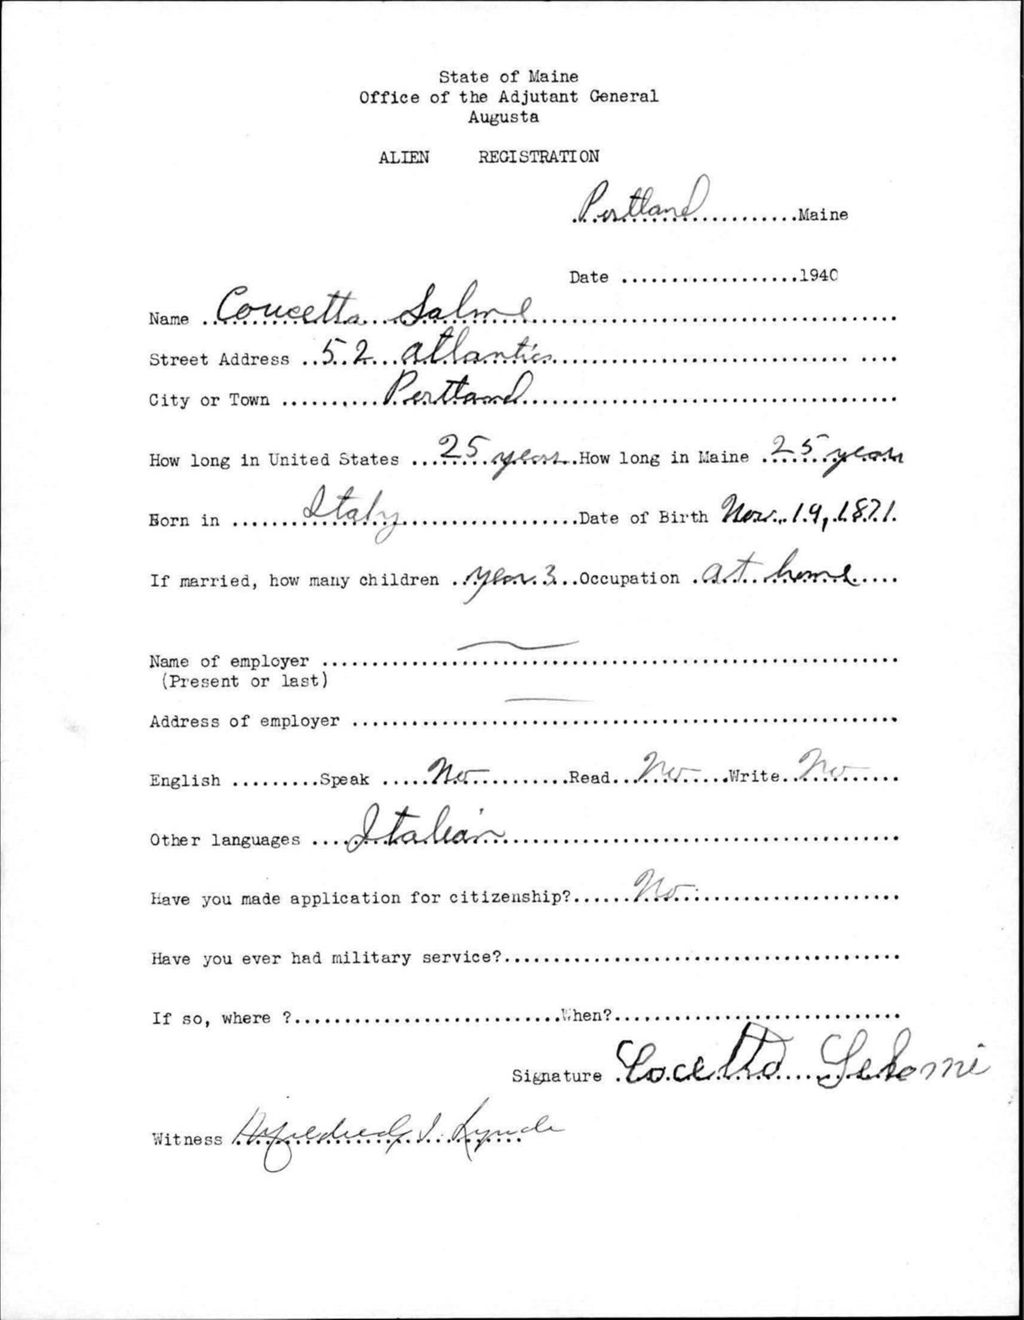 State of Maine
Office of the Adjutant General
Augusta
ALIEN REGISTRATION
Portland Maine
Date 1940
Name Concetta Salme
Street Address 52 Atlantic
City or Town Portland
How long in United States 25 years How long in Maine 25 years
Born in Italy Date of Birth Nov. 19, 1871
If married, how many children yes 3 Occupation at home
Name of employer
(Present or last)
Address of employer
English Speak No Read No Write No
Other languages Italian
Have you made application for citizenship? No
Have you ever had military service?
If so, where ? When?
Signature
Witness